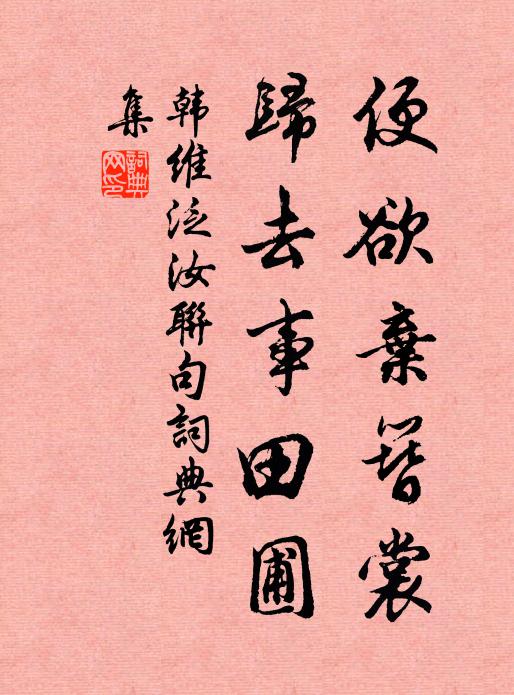 便欲棄簪裳
歸去事田圃
韩維泛汝聯句詞典網
集
詞典
网印